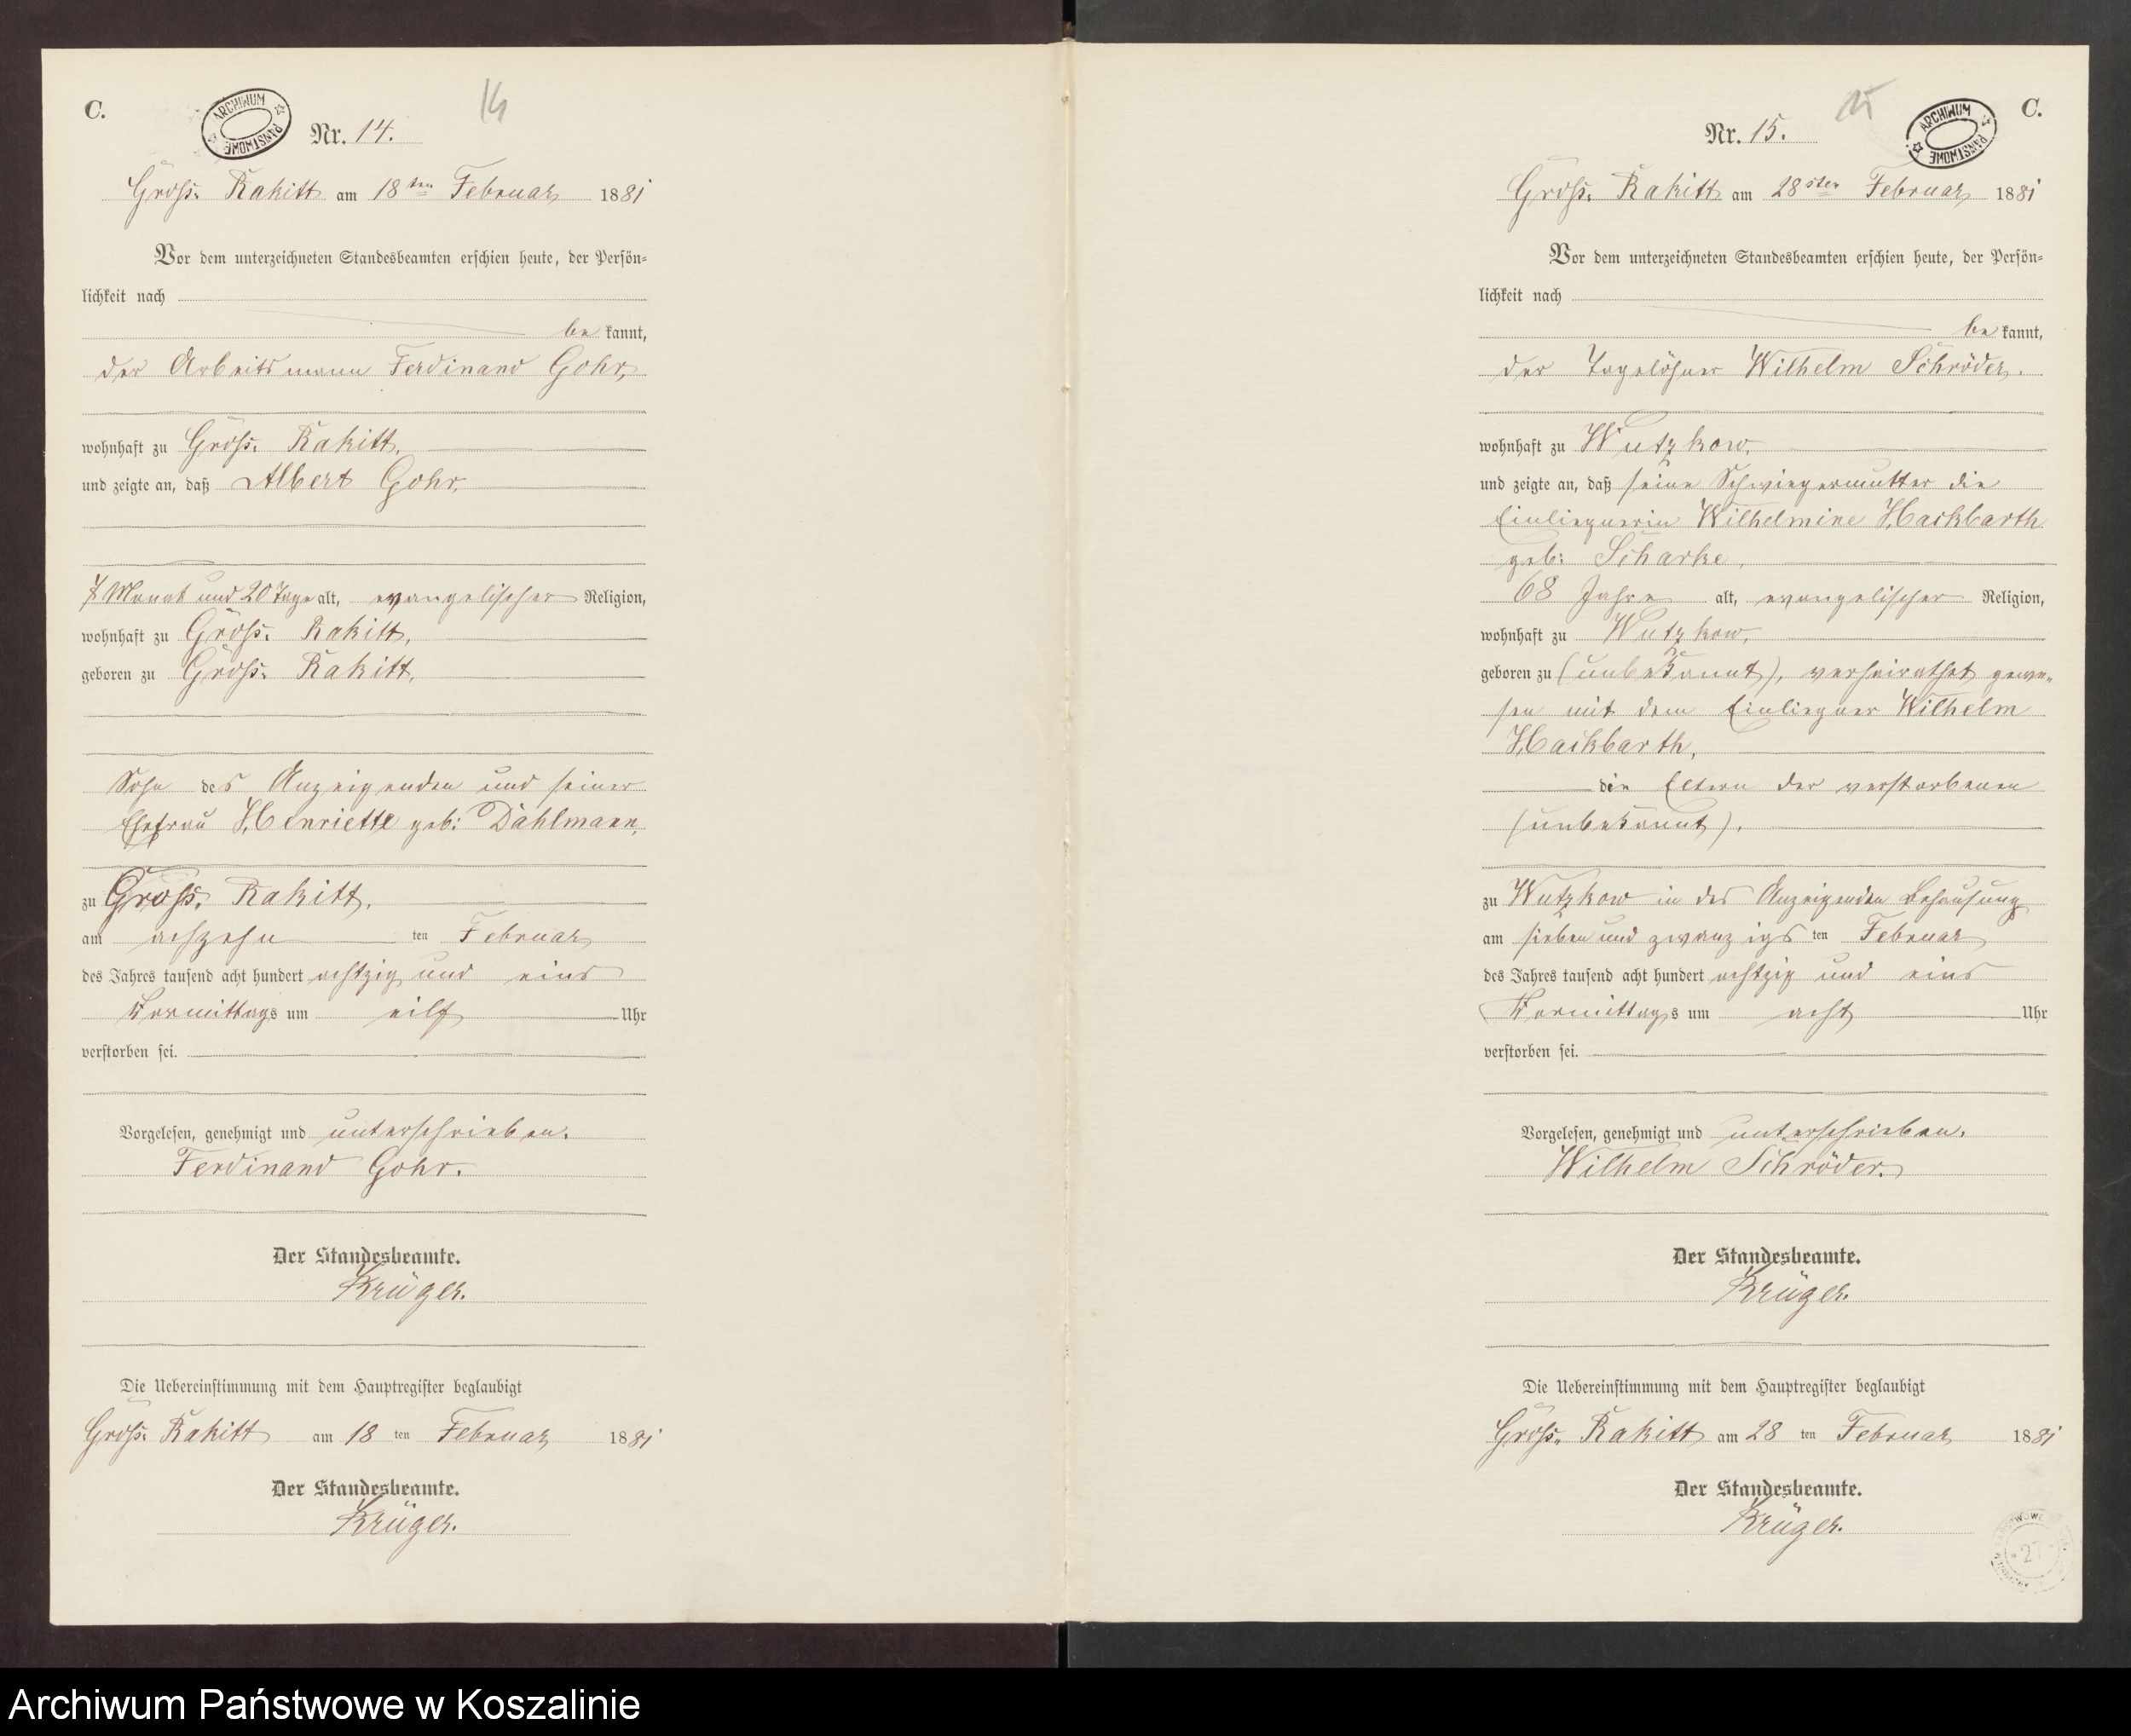 C.
ARCHIWUM PAŃSTWOWE
14
Nr. 14.
Groß. Rakitt am 18ten Februar 1881
Vor dem unterzeichneten Standesbeamten erschien heute, der Persön-
lichkeit nach
bekannt,
der Arbeitsmann Ferdinand Gohr,
wohnhaft zu Groß. Rakitt,
und zeigte an, daß Albert Gohr,
7 Monat und 20 Tage alt, evangelischer Religion,
wohnhaft zu Groß. Rakitt,
geboren zu Groß. Rakitt,
Sohn des Anzeigenden und seiner
Ehefrau Henriette geb: Dahlmann,
zu Groß. Rakitt,
am achzehn ten Februar
des Jahres tausend acht hundert achtzig und eins
Vormittags um eilf Uhr
verstorben sei.
Vorgelesen, genehmigt und unterschrieben.
Ferdinand Gohr.
Der Standesbeamte.
Krüger.
Die Uebereinstimmung mit dem Hauptregister beglaubigt
Groß. Rakitt am 18 ten Februar 1881
Der Standesbeamte.
Krüger.
15
ARCHIWUM PAŃSTWOWE
C.
Nr. 15.
Groß. Rakitt am 28sten Februar 1881
Vor dem unterzeichneten Standesbeamten erschien heute, der Persön-
lichkeit nach
bekannt,
der Tagelöhner Wilhelm Schröder.
wohnhaft zu Wutzkow,
und zeigte an, daß seine Schwiegermutter die
Einliegnerin Wilhelmine Hackbarth
geb: Scharke,
68 Jahre alt, evangelischer Religion,
wohnhaft zu Wutzkow,
geboren zu (unbekannt), verheirathet gewe-
sen mit dem Einliegner Wilhelm
Hackbarth,
die Eltern der verstorbenen
(unbekannt).
zu Wutzkow in des Anzeigenden Behausung
am sieben und zwanzigs ten Februar
des Jahres tausend acht hundert achtzig und eins
Vormittags um acht Uhr
verstorben sei.
Vorgelesen, genehmigt und unterschrieben.
Wilhelm Schröder.
Der Standesbeamte.
Krüger.
Die Uebereinstimmung mit dem Hauptregister beglaubigt
Groß. Rakitt am 28 ten Februar 1881
Der Standesbeamte.
Krüger.
Archiwum Państwowe w Koszalinie